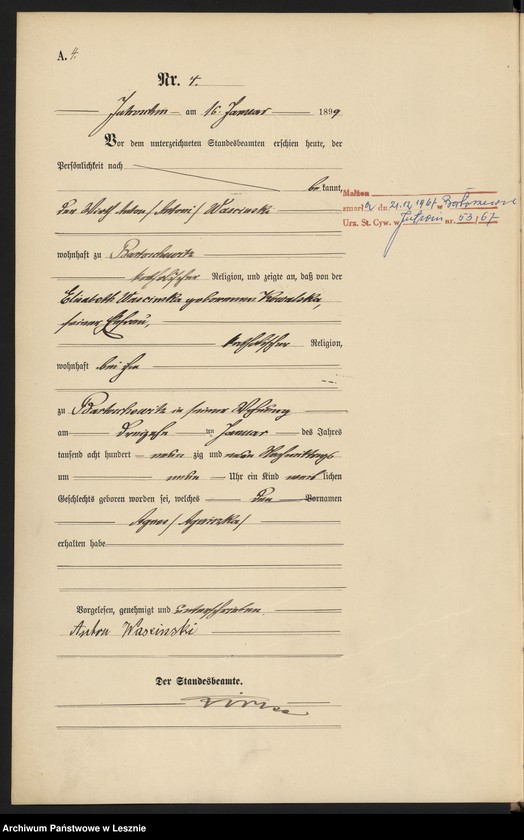 A. 4.
Nr. 4.
Jutroschin am 16. Januar 1899
Vor dem unterzeichneten Standesbeamten erschien heute, der
Persönlichkeit nach
bekannt,
der Anton / Antoni / Wascinski
wohnhaft zu Bartoschewitz
katholischer Religion, und zeigte an, daß von der
Elisabeth Wascinska geborenen Kowalska,
seiner Ehefrau,
katholischer Religion,
wohnhaft bei ihm
zu Bartoschewitz in seiner Wohnung
am dreizehn ten Januar des Jahres
tausend acht hundert neun zig und neun Nachmittags
um neun Uhr ein Kind weiblichen
Geschlechts geboren worden sei, welches den Vornamen
Agnes / Agnieszka /
erhalten habe
Vorgelesen, genehmigt und unterschrieben
Anton Wascinski
Der Standesbeamte.
Małżen
zmarł a dn 21.12 1967 w
Urz. St. Cyw. w Jutrosin nr. 53/67
Archiwum Państwowe w Lesznie